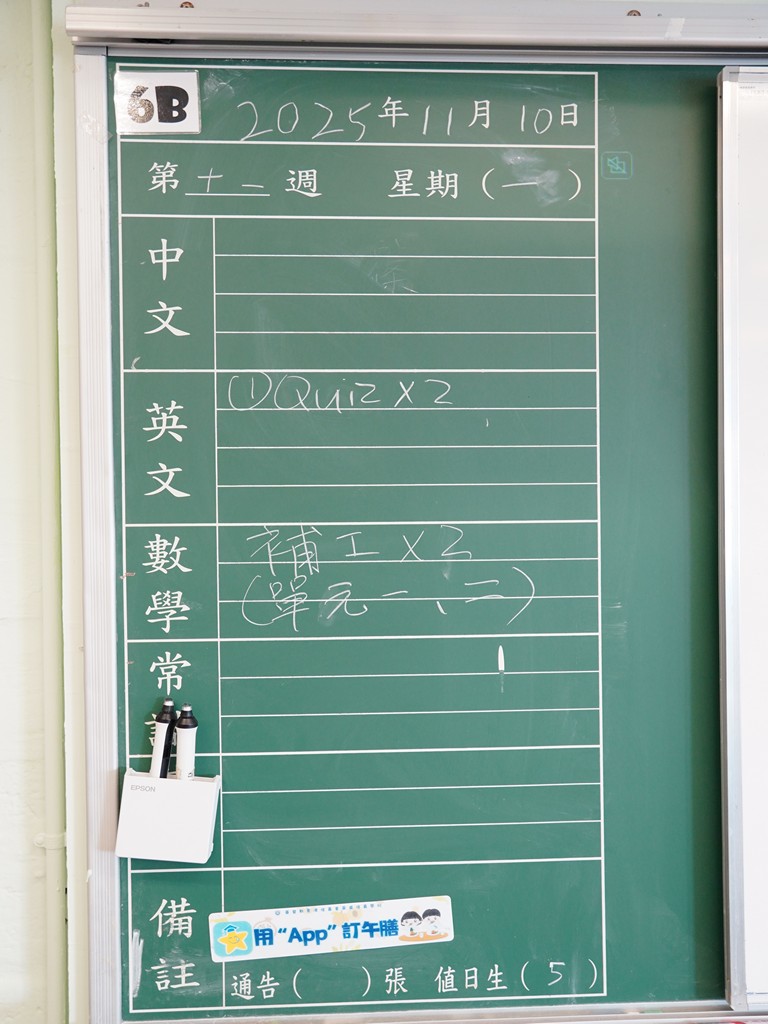 6B
2025年11月10日
第十一週 星期（一）
中文
英文
①Quiz x 2
數學
補工 x 2
(單元一、二)
常
EPSON
備註
用“App”訂午膳
通告（ ）張 值日生（5）